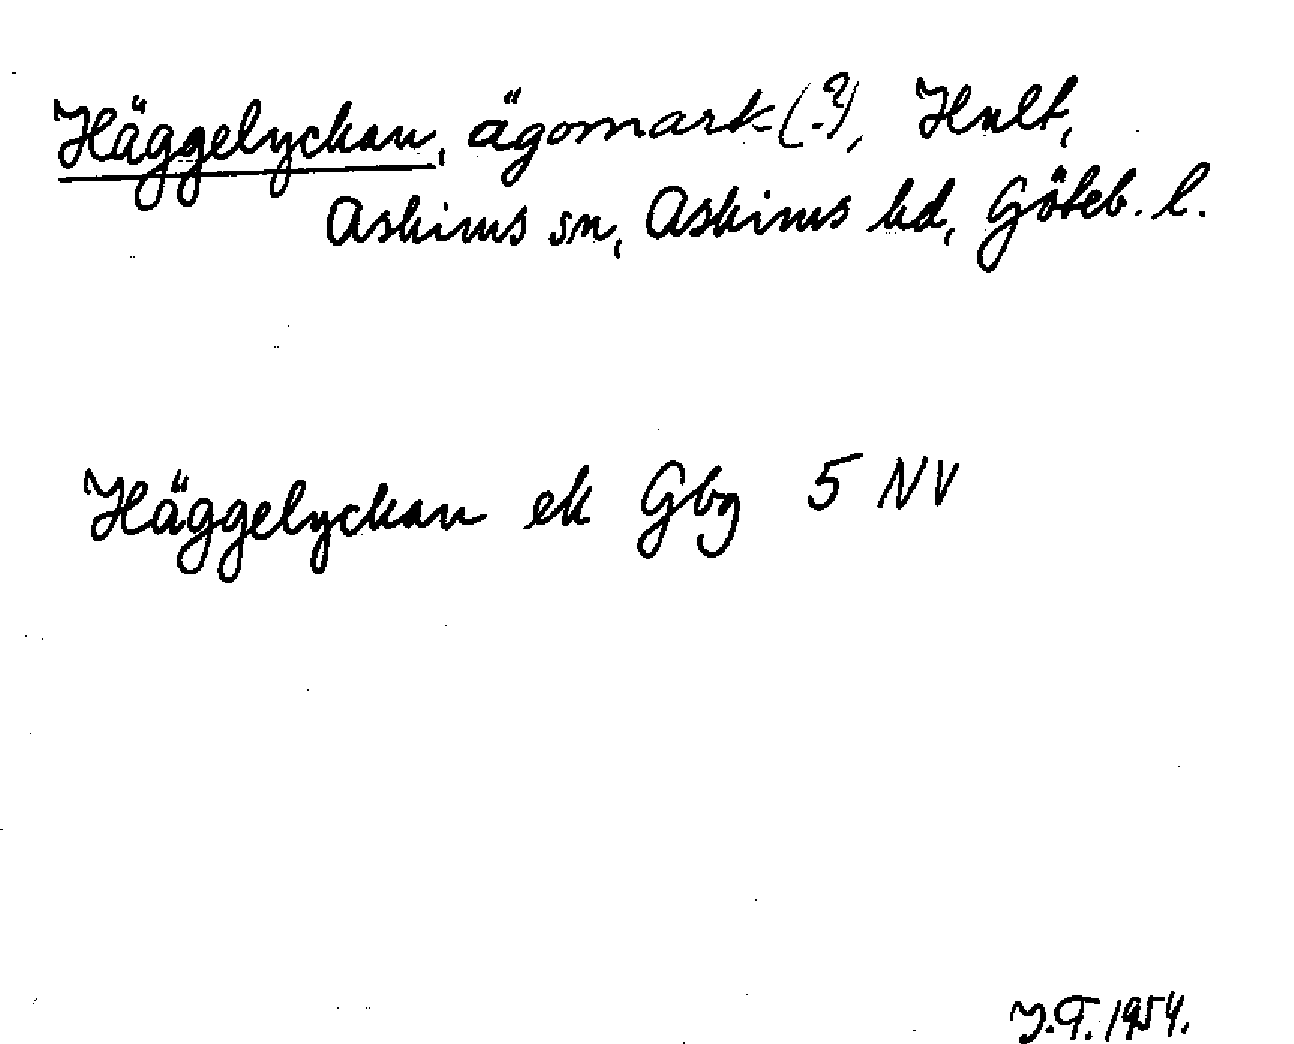 Häggelyckan, ägomark (?), Hult,
Askims sn, Askims hd, Göteb. l.
Häggelyckan ek Gbg 5 NV
J.T. 1954.